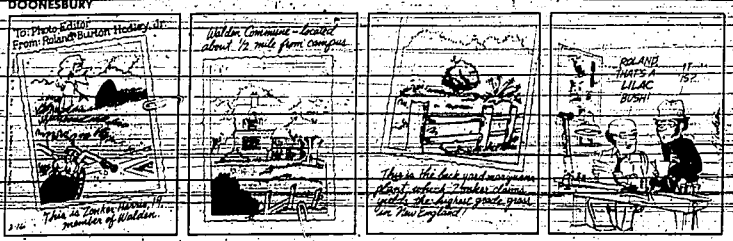 DOONESBURY
To: Photo Editor
From: Roland Burton Hedley, Jr.
This is Zonker Harris, 19,
member of Walden.
2-16
Walden Commune - located
about 1/2 mile from campus
This is the back yard marijuana
plant which Zonker claims
yields the highest grade grass
in New England!
ROLAND,
THAT'S A
LILAC
BUSH!
IT
IS?